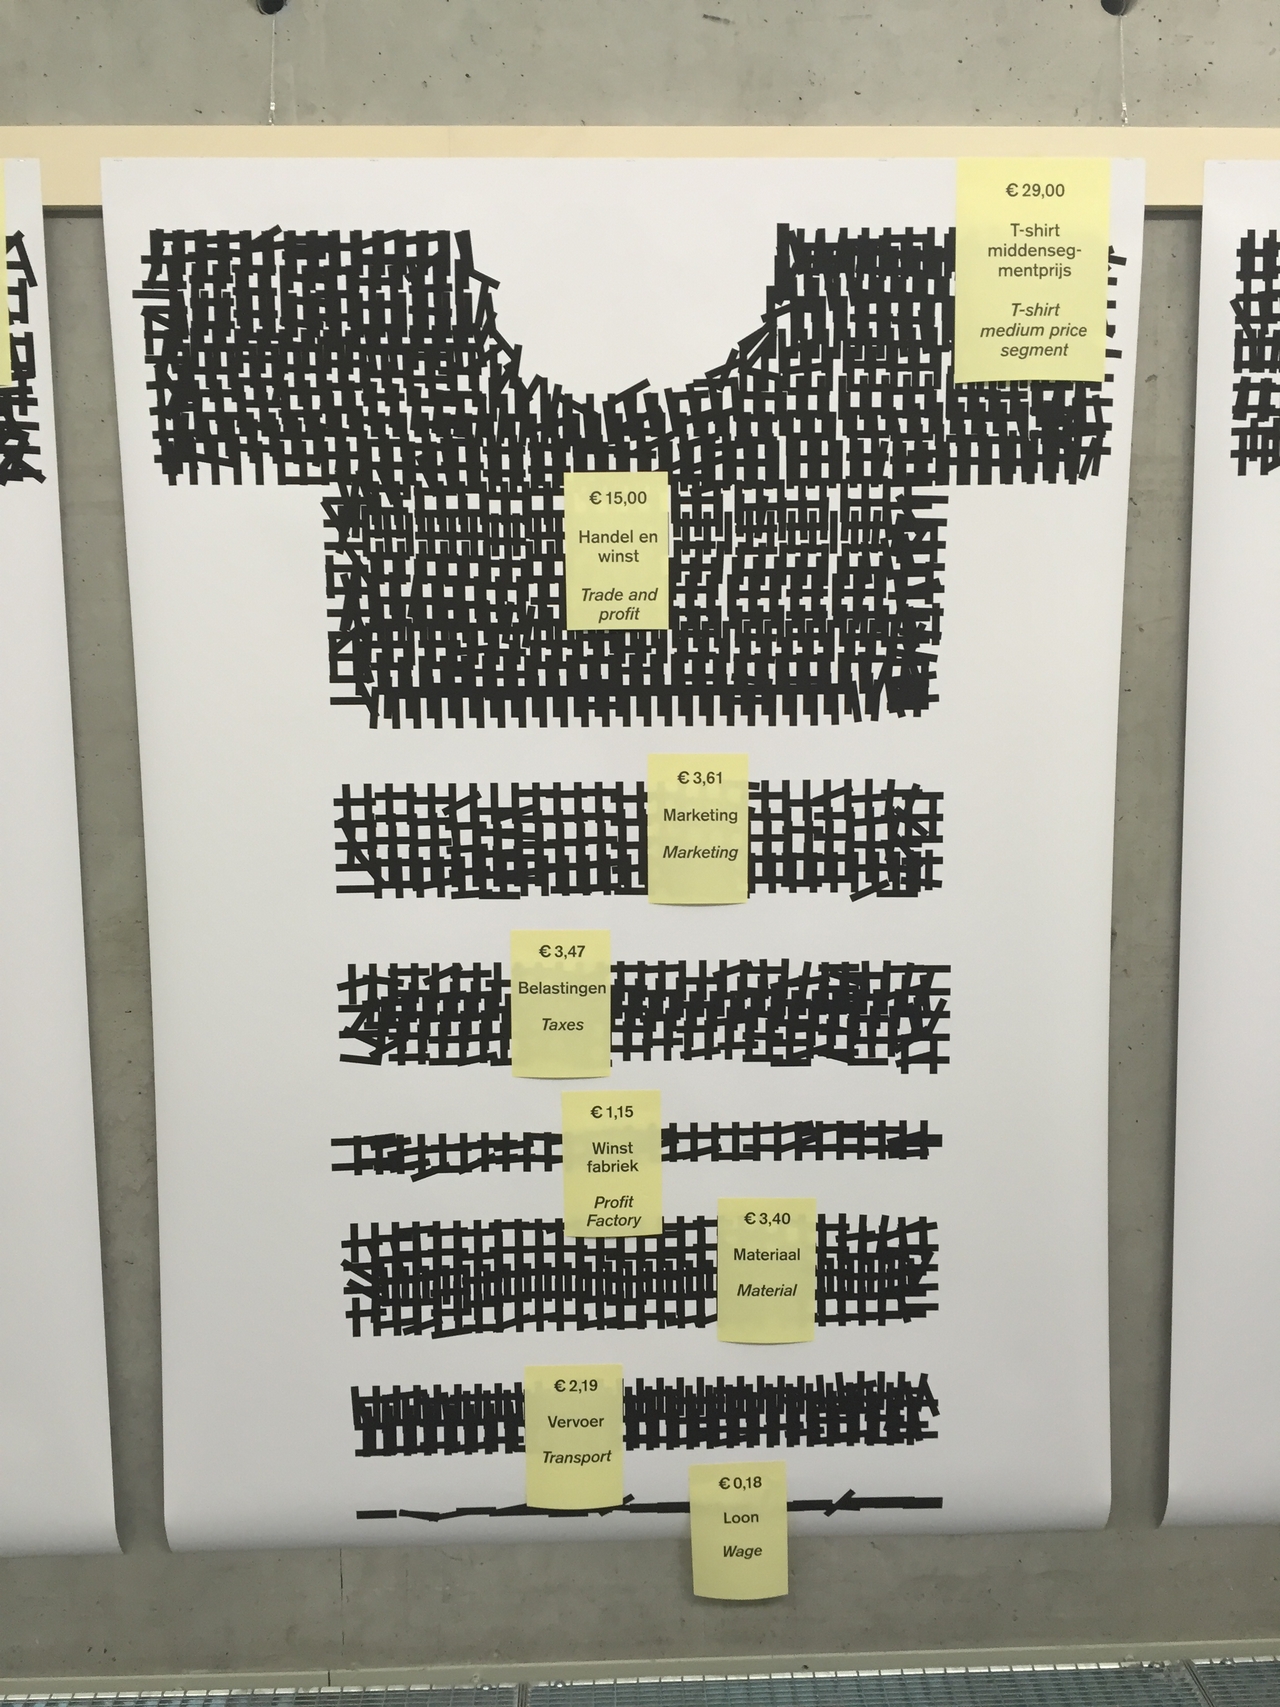 € 29,00
T-shirt
middenseg-
mentprijs
T-shirt
medium price
segment
€ 15,00
Handel en
winst
Trade and
profit
€ 3,61
Marketing
Marketing
€ 3,47
Belastingen
Taxes
€ 1,15
Winst
fabriek
Profit
Factory
€ 3,40
Materiaal
Material
€ 2,19
Vervoer
Transport
€ 0,18
Loon
Wage